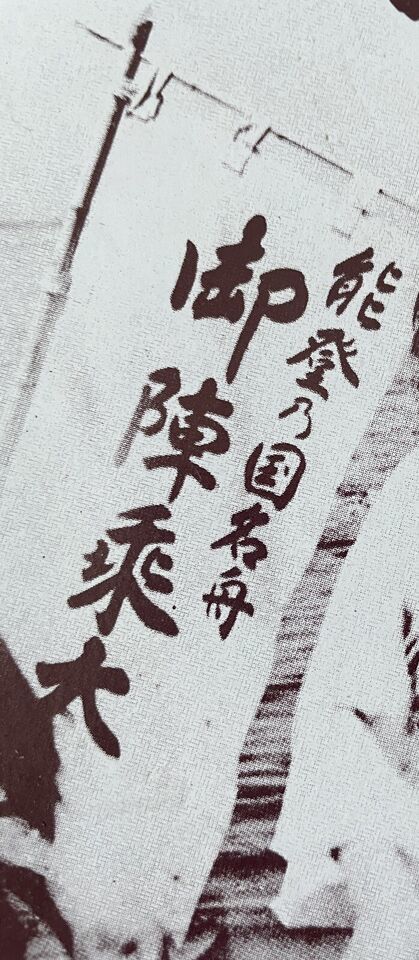 能登乃国名舟
御陣乘大